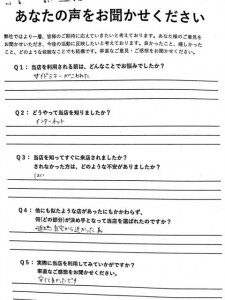 あなたの声をお聞かせください
弊社ではより一層、皆様のご期待に応えていきたいと考えております。あなた様のご意見を
お聞かせいただき、今後の活動に反映したいと考えております。良かったこと、嬉しかった
こと、どのような些細なことでも結構です。率直なご意見・ご感想をお聞かせください。
Q1： 当店を利用される前は、どんなことでお悩みでしたか？
サイドミラーがこわれた
Q2： どうやって当店を知りましたか？
インターネット
Q3： 当店を知ってすぐに来店されましたか？
されなかった方は、どのような不安がありましたか？
はい
Q4： 他にも似たような店があったにもかかわらず、
何(どの部分)が決め手となって当店を選ばれたのですか？
自宅から近かった為
Q5： 実際に当店を利用してみていかがですか？
率直なご感想をお聞かせください。
安くて良かったです